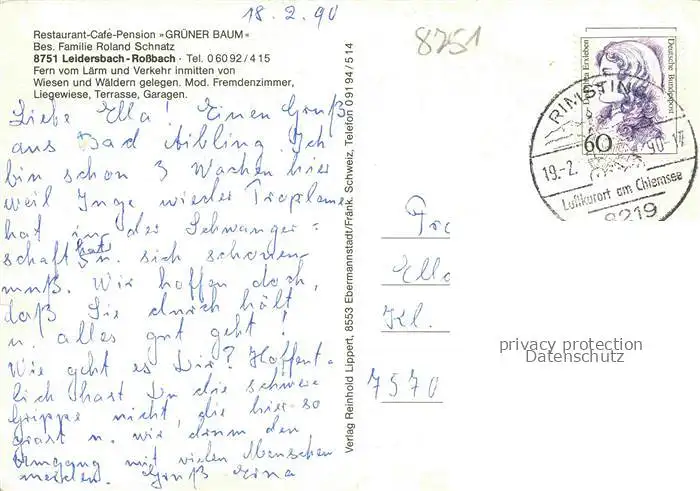 18.2.90
Restaurant-Café-Pension »GRÜNER BAUM«
Bes. Familie Roland Schnatz
8751 Leidersbach-Roßbach · Tel. 0 60 92 / 4 15
Fern vom Lärm und Verkehr inmitten von
Wiesen und Wäldern gelegen. Mod. Fremdenzimmer,
Liegewiese, Terrasse, Garagen.
Liebe Ella! Einen Gruß
aus Bad Aibling Ich
bin schon 3 Wochen hier
weil Inge wieder Probleme
hat in der Schwanger=
schaft hat u. sich schonen
muß. Wir hoffen doch,
daß Sie durch hält
u. alles gut geht!
Wie geht es Dir? Hoffent-
lich hast Du die schwere
Grippe nicht, die hier so
grast u. wir drum den
Umgang mit vielen Menschen
meiden. Gruß Erna
Verlag Reinhold Lippert, 8553 Ebermannstadt/Fränk. Schweiz, Telefon 0 91 94 / 5 14
8751
Dorothea Erxleben
Deutsche Bundespost
60
RIMSTING
19.-2. 90-17
Luftkurort am Chiemsee
8219
Fr
Ella
Kl.
7570
privacy protection
Datenschutz